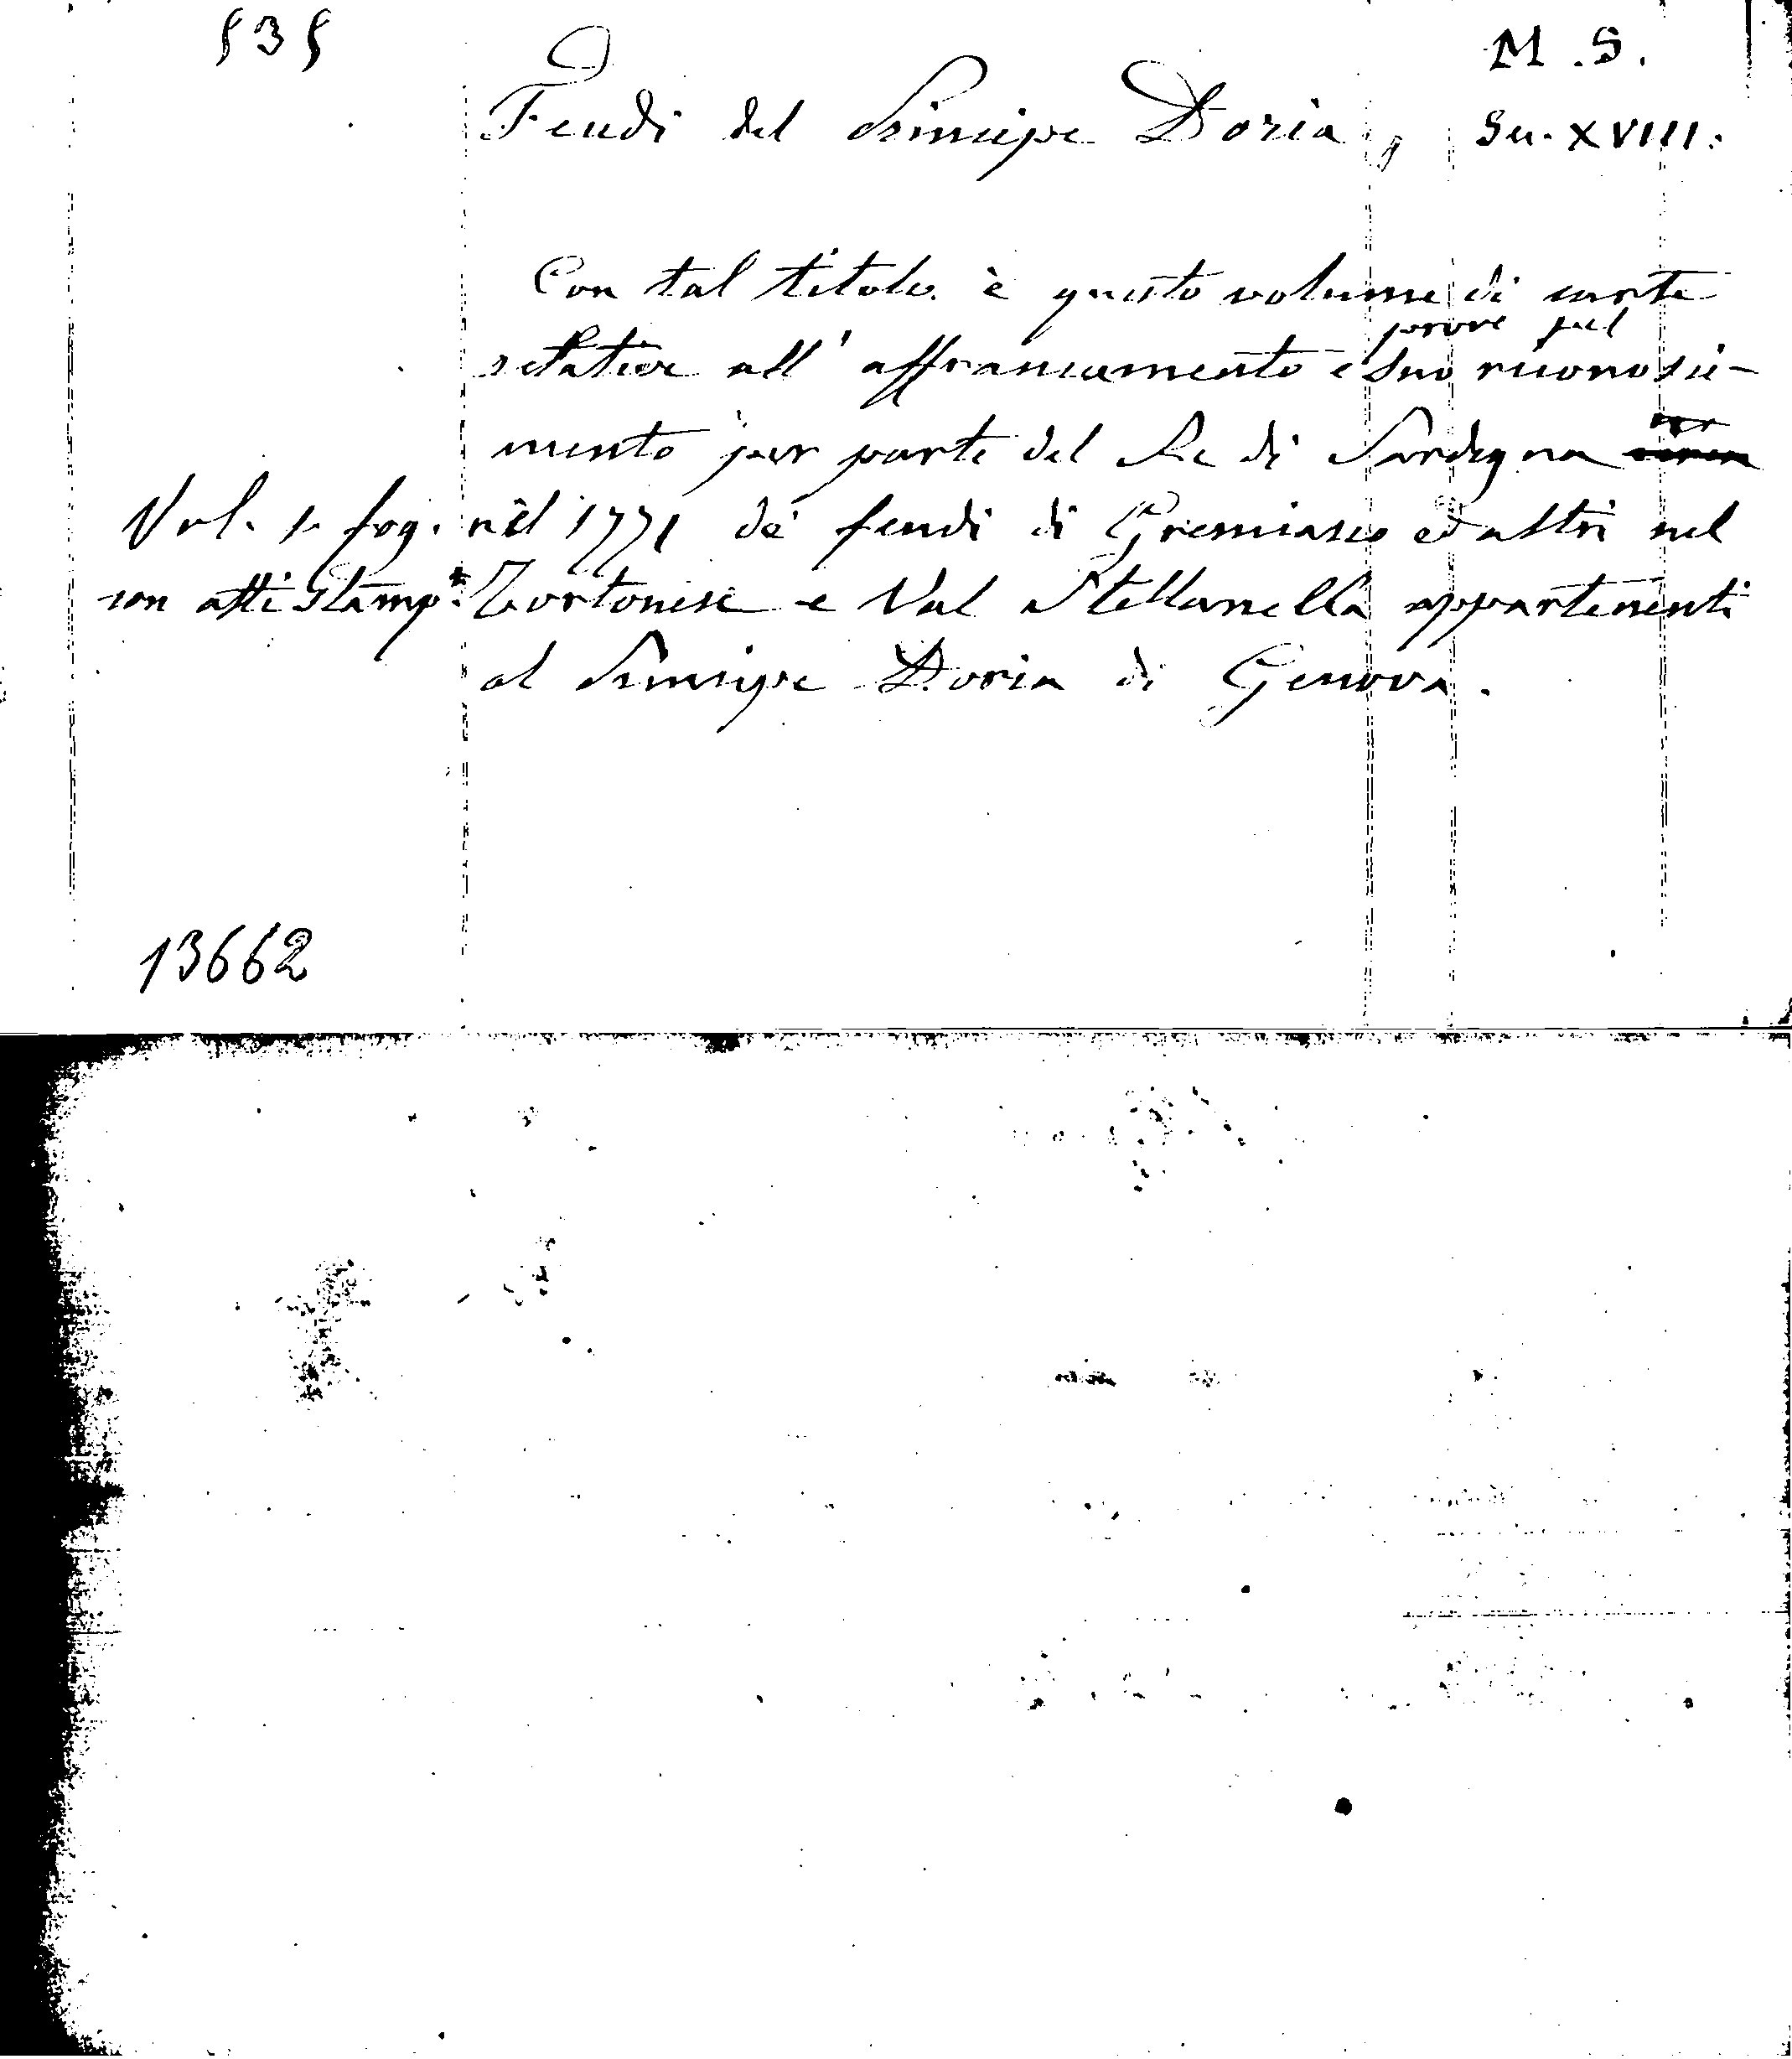 535
M.S.
Feudi del Principe Doria,
Sec. XVIII.
Con tal titolo è questo volume di carte
prove pel
relative all'affrancamento e suo riconosci-
mento per parte del Re di Sardegna
Vol. 1. fog.
nel 1771 de' feudi di Gremiasco ed altri nel
con atti stamp.
Tortonese e Val Stellanella appartenenti
al Principe Doria di Genova.
13662